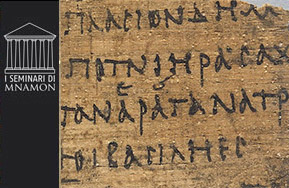 I SEMINARI DI
MNAMON
ΠΛΑCΙΟΝΔΗΜ
ΠΟΤΝΙΗΡΑCΑΧ
ΤΑΝΑΡΑΤΑΝΑΤΡ
ΤΟΙΒΑCΙΛΗΕC